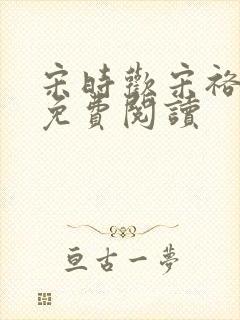 宋時歡宋裕
免費閱讀
亘古一夢